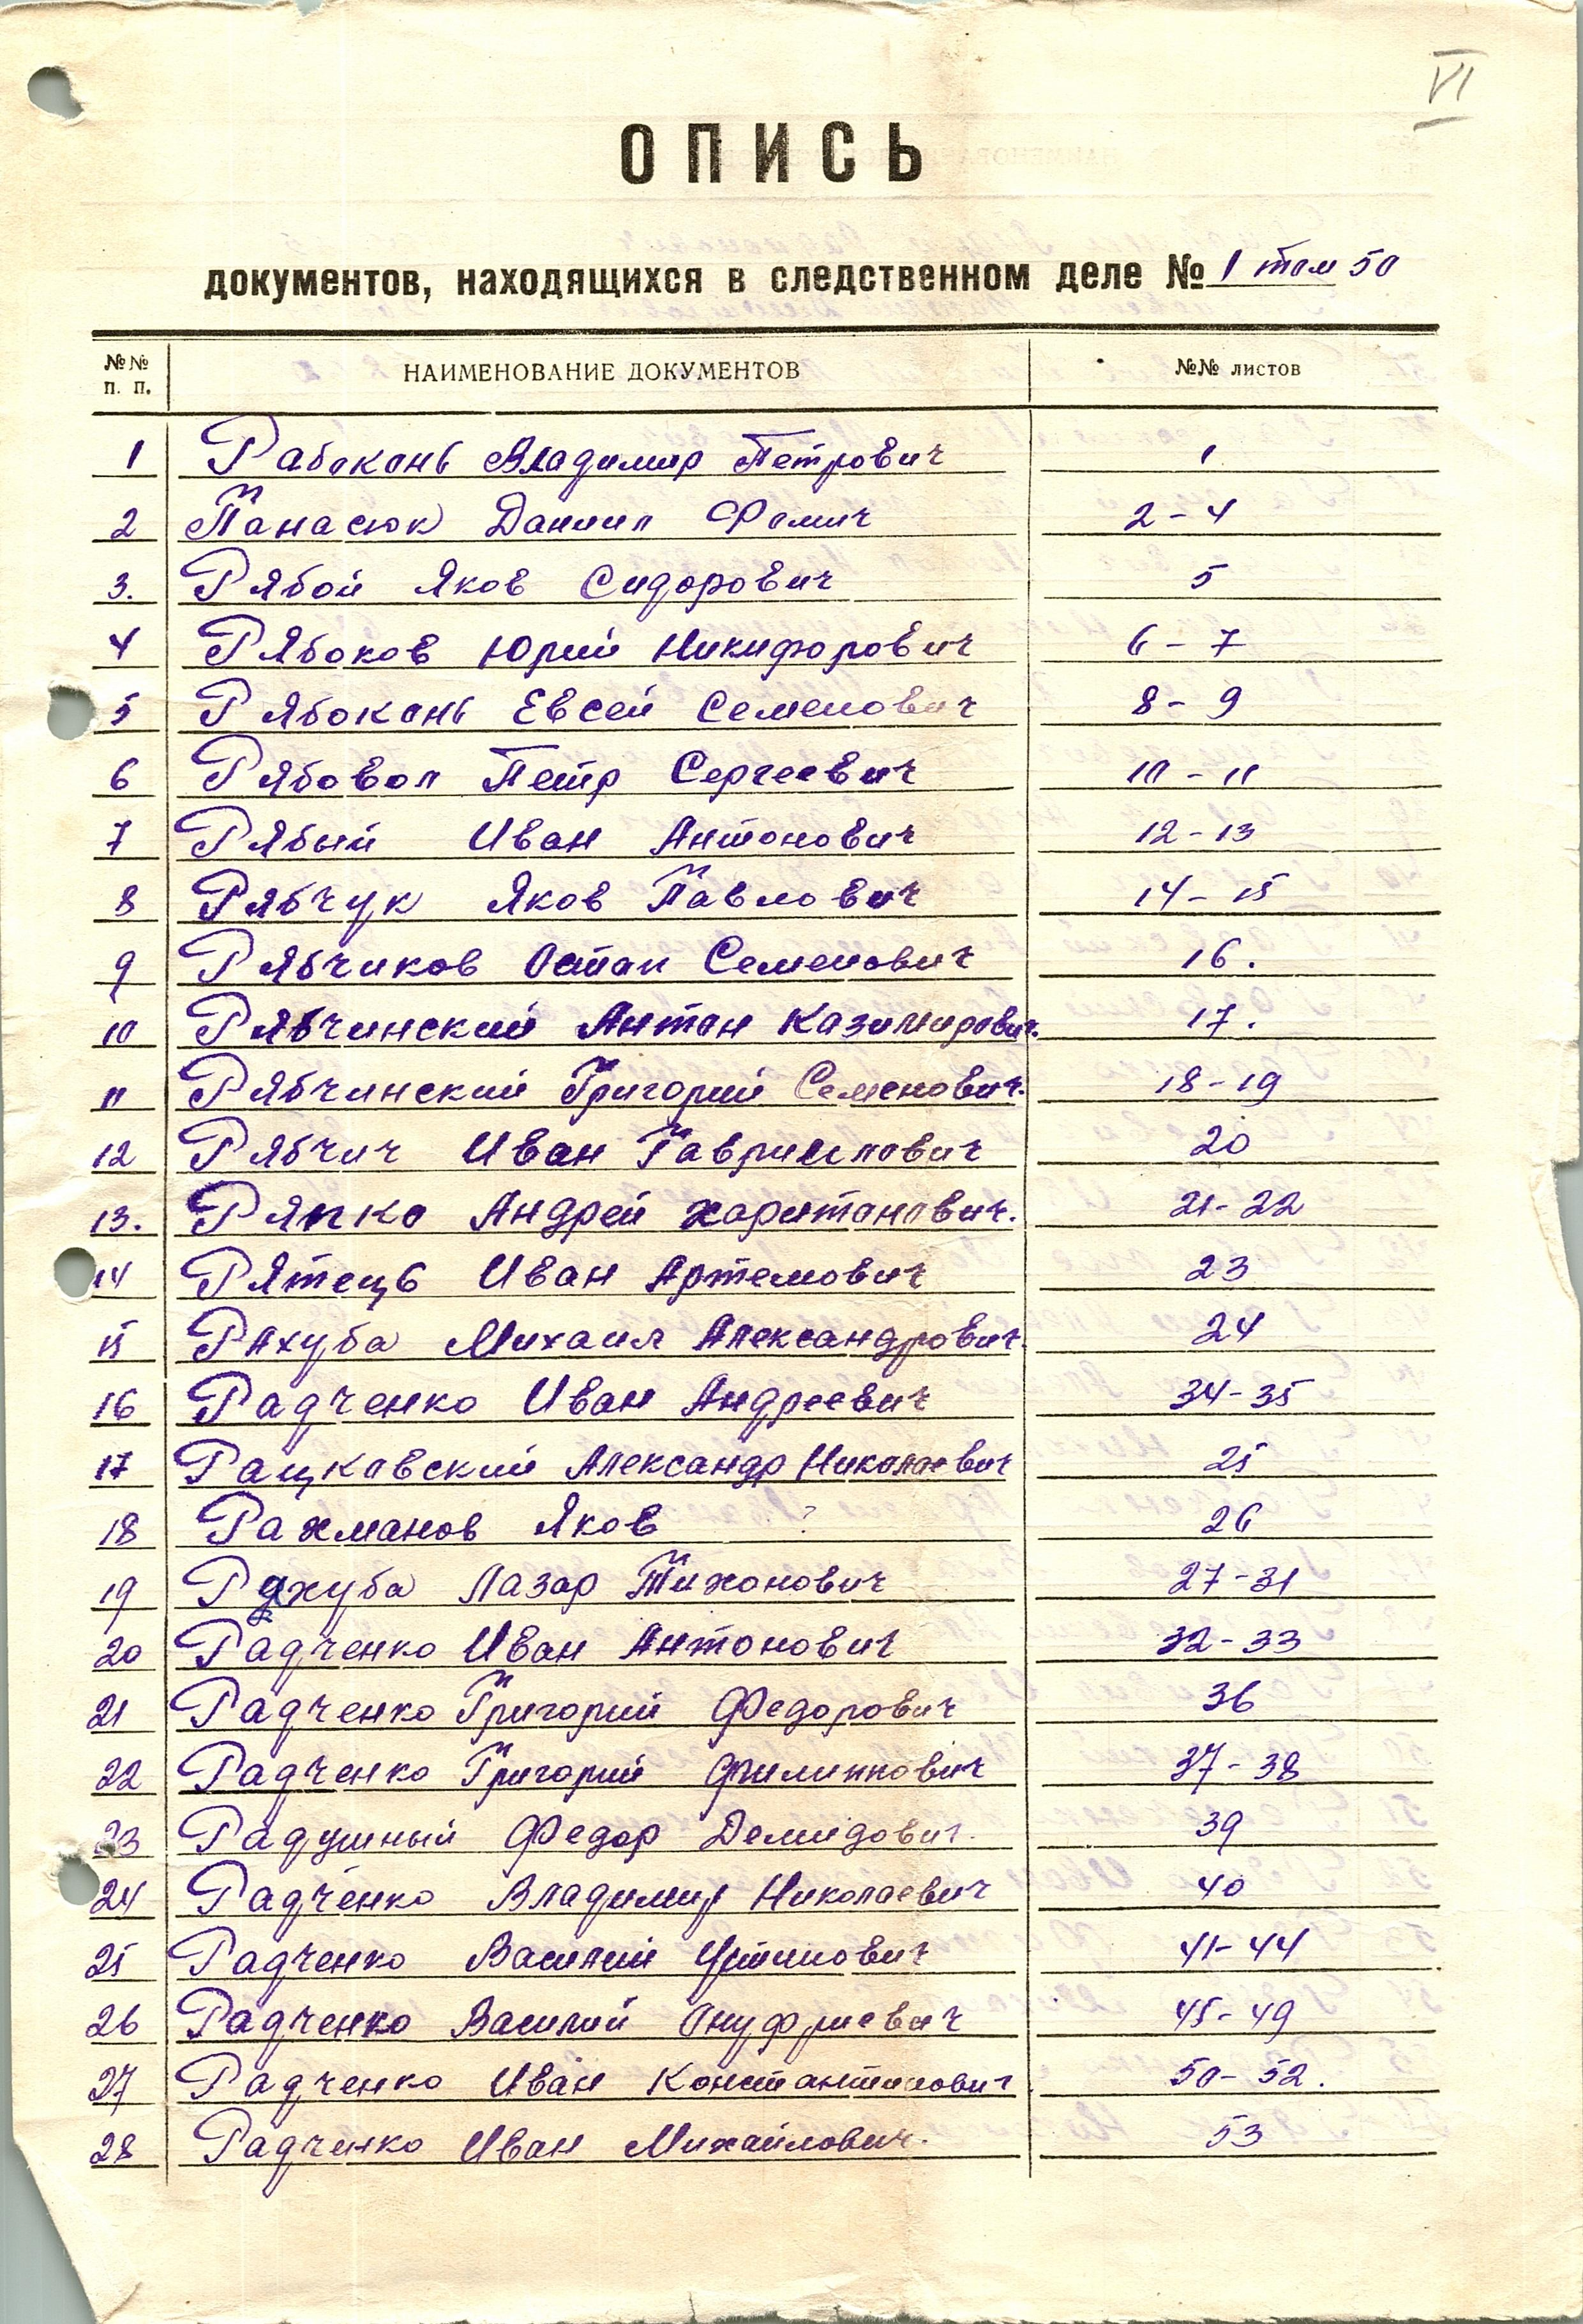 VI
ОПИСЬ
документов, находящихся в следственном деле № 1 том 50
№№ п. п. НАИМЕНОВАНИЕ ДОКУМЕНТОВ №№ листов
1 Рабоконь Владимир Петрович 1
2 Панасюк Даниил Фомич 2-4
3. Рябой Яков Сидорович 5
4 Рябоков Юрий Никифорович 6-7
5 Рябоконь Евсей Семенович 8-9
6 Рябовол Петр Сергеевич 10-11
7 Рябый Иван Антонович 12-13
8 Рябчук Яков Павлович 14-15
9 Рябчиков Остап Семенович 16.
10 Рябчинский Антон Казимирович. 17.
11 Рябчинский Григорий Семенович. 18-19
12 Рябчич Иван Гаврилович 20
13. Ряпко Андрей Харитонович. 21-22
14 Рятець Иван Артемович 23
15 Ряхуба Михаил Александрович. 24
16 Радченко Иван Андреевич 34-35
17 Рацковский Александр Николаевич 25
18 Рахманов Яков ? 26
19 Ряхуба Лазар Тихонович 27-31
20 Радченко Иван Антонович 32-33
21 Радченко Григорий Федорович 36
22 Радченко Григорий Филиппович 37-38
23 Радушный Федор Демидович. 39
24 Радченко Владимир Николаевич 40
25 Радченко Василий Устинович 41-44
26 Радченко Василий Онуфриевич 45-49
27 Радченко Иван Константинович 50-52.
28 Радченко Иван Михайлович. 53